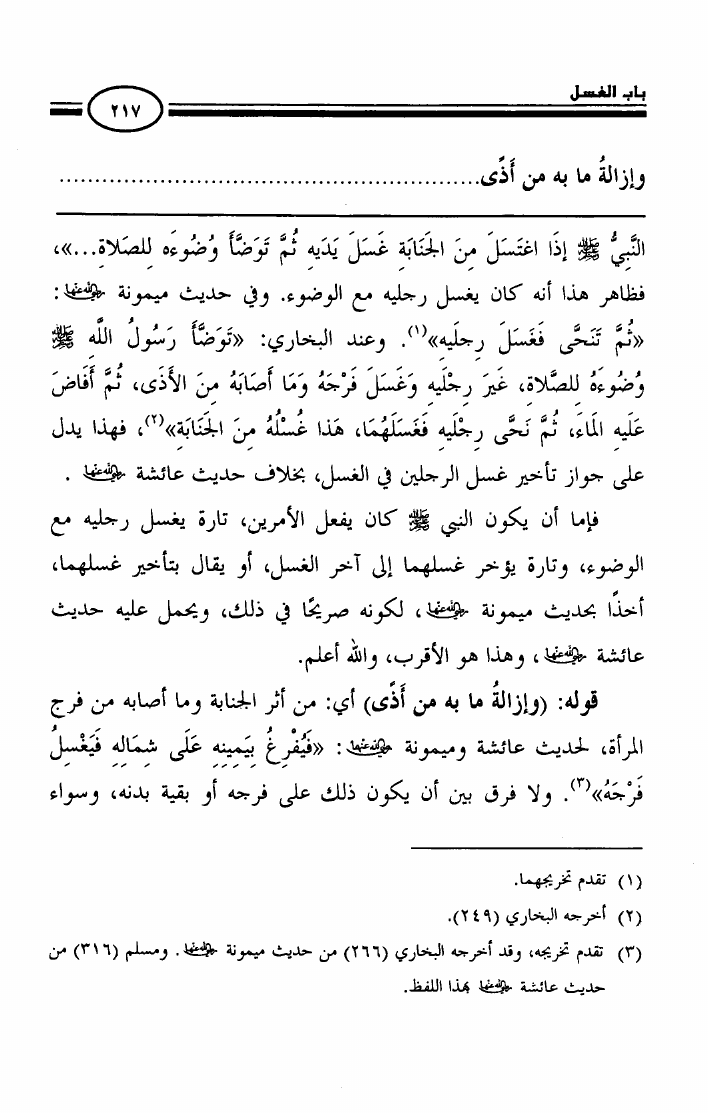 باب الغسل
٢١٧
وإزالةُ ما به من أَذًى......................................................
النَّبِيُّ ﷺ إِذَا اغتَسَلَ مِنَ الجَنَابَةِ غَسَلَ يَدَيهِ ثُمَّ تَوَضَّأَ وُضُوءَه لِلصَلَاةِ...»،
فظاهر هذا أنه كان يغسل رجليه مع الوضوء. وفي حديث ميمونة رضي الله عنها:
«ثُمَّ تَنَحَّى فَغَسَلَ رِجلَيهِ»(١). وعند البخاري: «تَوَضَّأَ رَسُولُ اللَّهِ ﷺ
وُضُوءَهُ لِلصَّلَاةِ، غَيرَ رِجْلَيهِ وَغَسَلَ فَرْجَهُ وَمَا أَصَابَهُ مِنَ الأَذَى، ثُمَّ أَفَاضَ
عَلَيهِ الَماءَ، ثُمَّ نَحَّى رِجْلَيهِ فَغَسَلَهُمَا، هَذَا غُسْلُهُ مِنَ الجَنَابَةِ»(٢)، فهذا يدل
على جواز تأخير غسل الرجلين في الغسل، بخلاف حديث عائشة رضي الله عنها .
فإما أن يكون النبي ﷺ كان يفعل الأمرين، تارة يغسل رجليه مع
الوضوء، وتارة يؤخر غسلهما إلى آخر الغسل، أو يقال بتأخير غسلهما،
أخذًا بحديث ميمونة رضي الله عنها، لكونه صريحًا في ذلك، ويحمل عليه حديث
عائشة رضي الله عنها، وهذا هو الأقرب، والله أعلم.
قوله: (وإزالةُ ما به من أَذًى) أي: من أثر الجنابة وما أصابه من فرج
المرأة، لحديث عائشة وميمونة رضي الله عنهما: «فَيُفْرِغُ بِيَمِينِهِ عَلَى شِمَالِهِ فَيَغْسِلُ
فَرْجَهُ»(٣). ولا فرق بين أن يكون ذلك على فرجه أو بقية بدنه، وسواء
(١) تقدم تخريجهما.
(٢) أخرجه البخاري (٢٤٩).
(٣) تقدم تخريجه، وقد أخرجه البخاري (٢٦٦) من حديث ميمونة رضي الله عنها. ومسلم (٣١٦) من
حديث عائشة رضي الله عنها بهذا اللفظ.